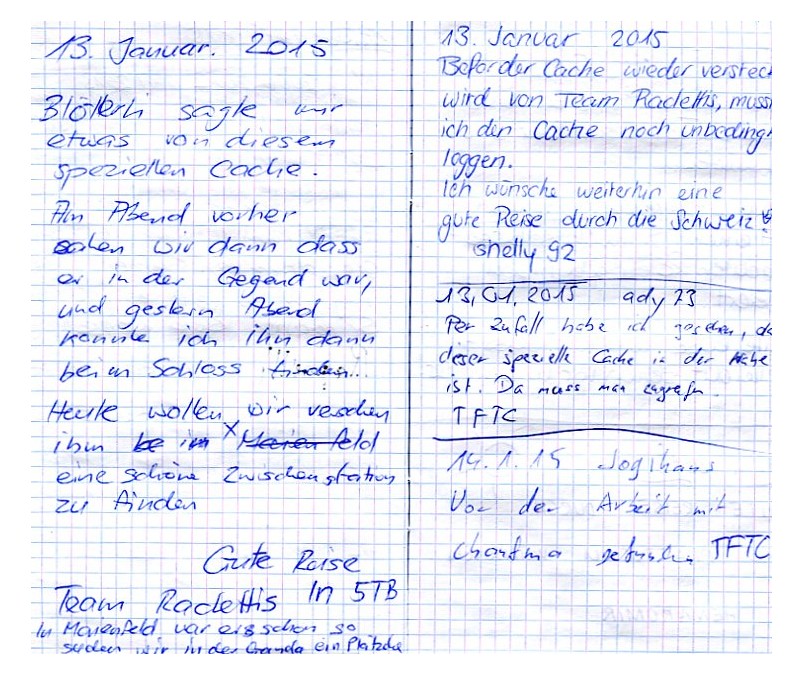 13. Januar. 2015
Blötterli sagte mir
etwas von diesem
speziellen Cache.
Am Abend vorher
sahen wir dann dass
er in der Gegend war,
und gestern Abend
konnte ich ihn dann
beim Schloss finden...
Heute wollen wir versuchen
ihm be im x Marienfeld
eine schöne Zwischenstation
zu finden
Gute Reise
Team Raclettis In 5TB
In Marienfeld war er schon so
suchen wir in der ein Plätzche
13. Januar 2015
Befor der Cache wieder versteck
wird von Team Raclettis, muss
ich den Cache noch unbedingt
loggen.
Ich wünsche weiterhin eine
gute Reise durch die Schweiz!
shelly 92
13,01,2015 ady 73
Per Zufall habe ich gesehen, da
dieser spezielle Cache in der Nähe
ist. Da muss man zugreifen.
TFTC
14.1.15 Jogihans
Vor der Arbeit mit
gefunden TFTC